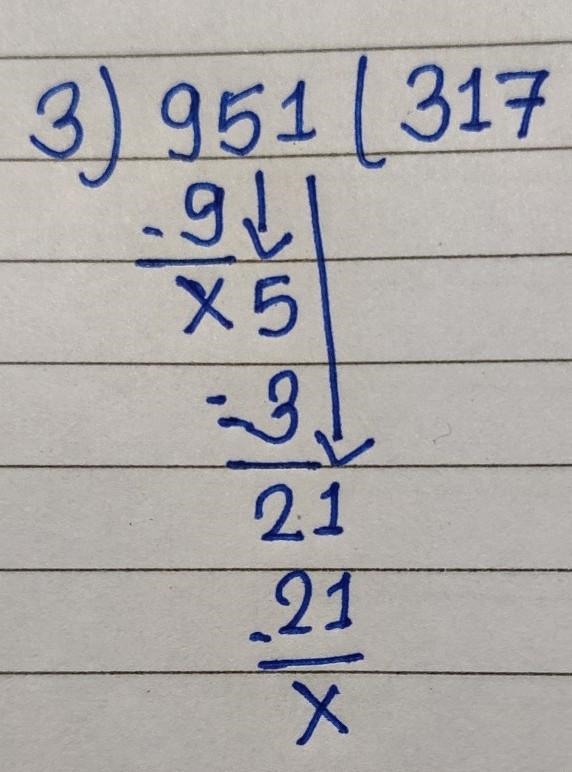 3) 951 ( 317
- 9
x 5
- 3
21
- 21
x